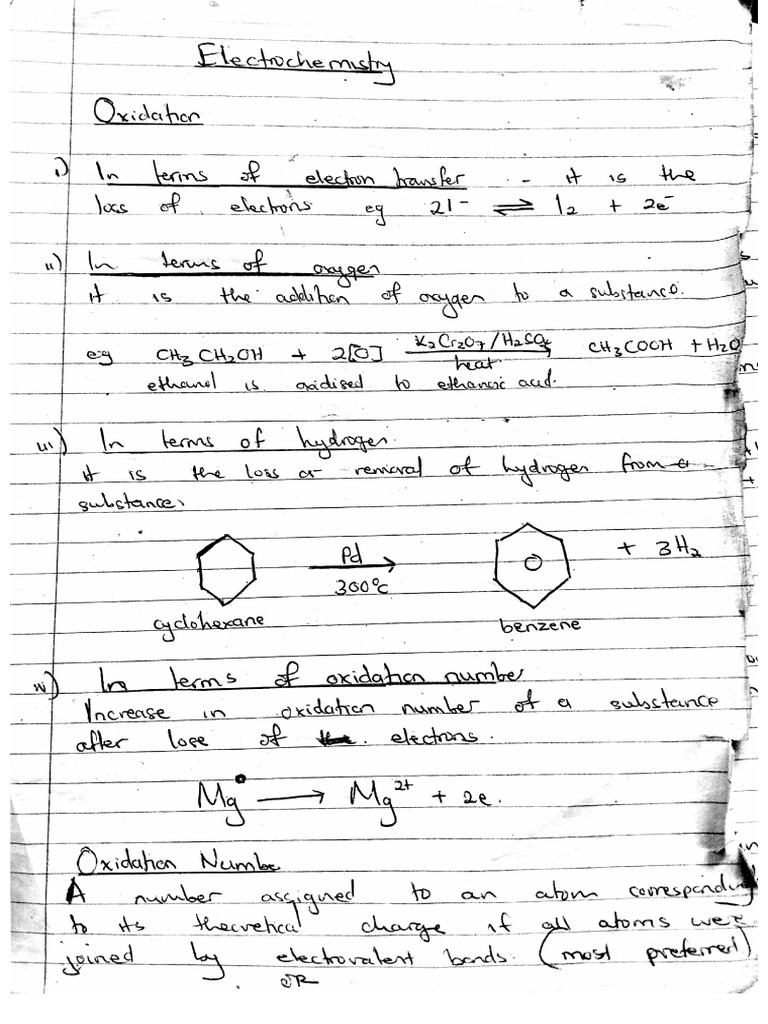 Electrochemistry
Oxidation
i) In terms of electron transfer - it is the
loss of electrons eg 2I⁻ ⇌ I₂ + 2e⁻
ii) In terms of oxygen
it is the addition of oxygen to a substance.
eg CH₃CH₂OH + 2[O] K₂Cr₂O₇/H₂SO₄ heat → CH₃COOH + H₂O
ethanol is oxidised to ethanoic acid.
iii) In terms of hydrogen.
it is the loss or removal of hydrogen from a
substance.
Pd 300°C → + 3H₂
cyclohexane benzene
iv) In terms of oxidation number
Increase in oxidation number of a substance
after lose of electrons.
Mg⁰ → Mg²⁺ + 2e.
Oxidation Number
A number assigned to an atom corresponding
to its theoretical charge if all atoms were
joined by electrovalent bonds. (most preferred)
OR